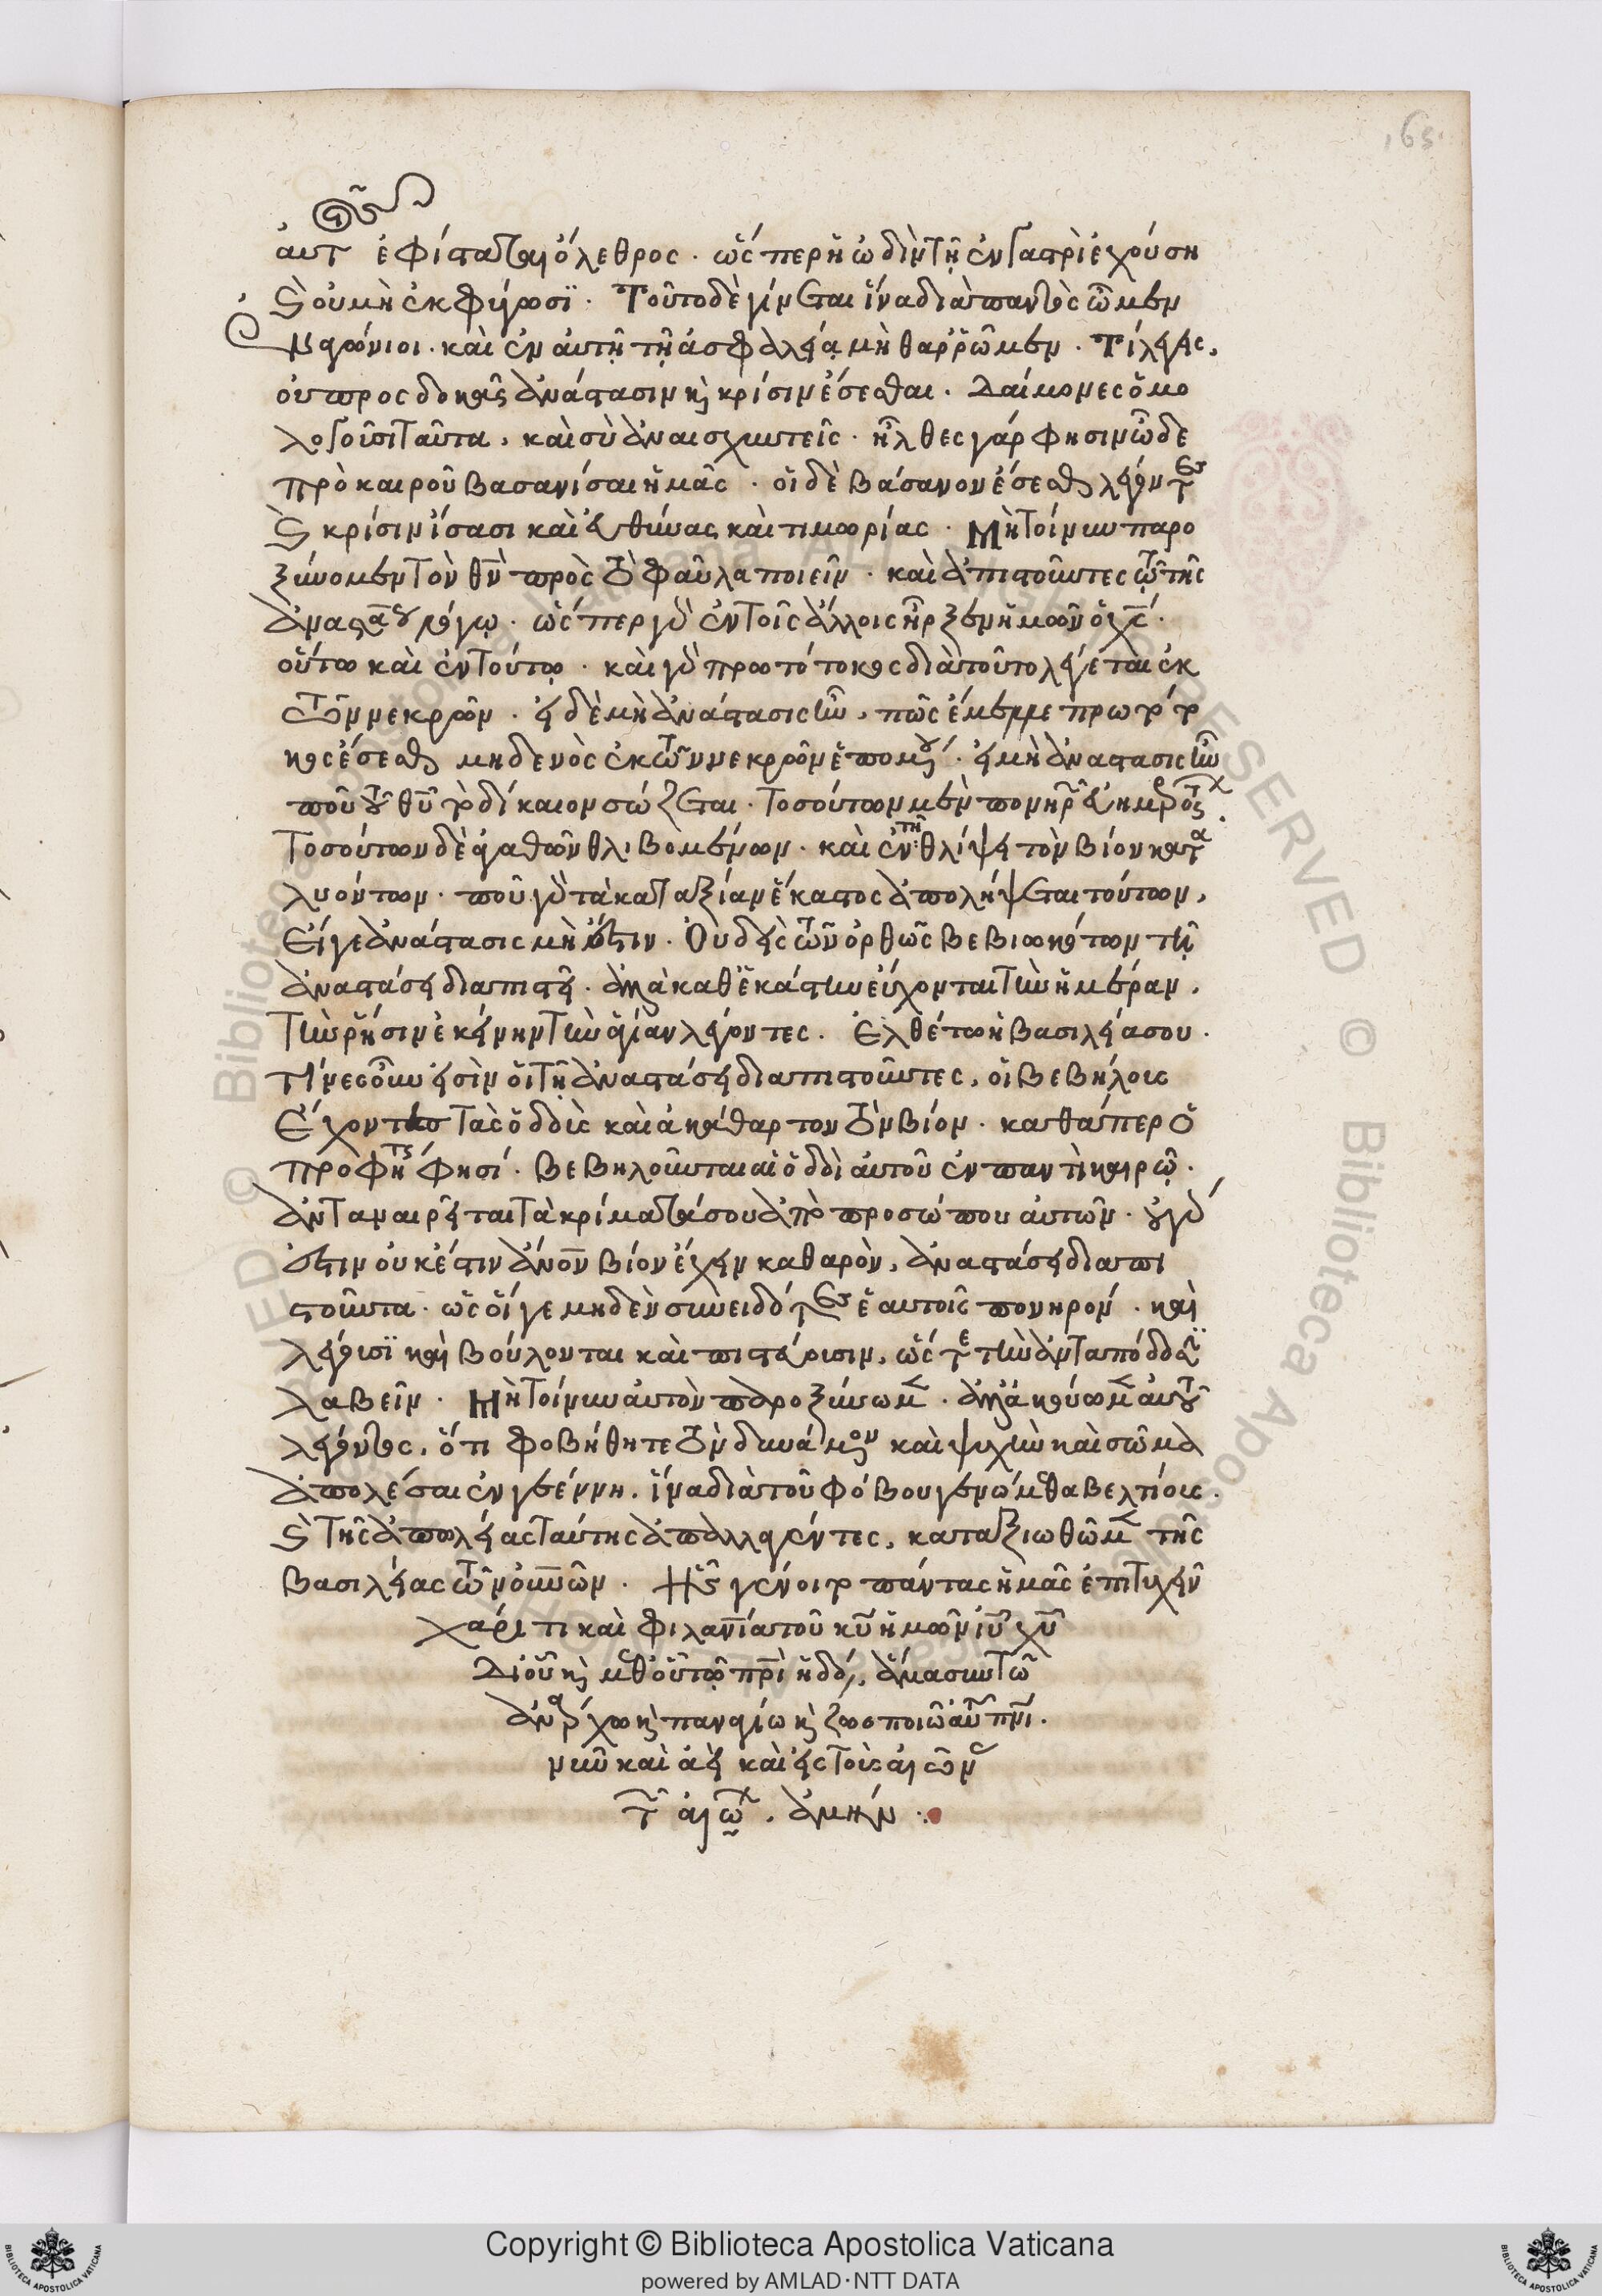 165
αὐτοῖς ἐφίσταται ὄλεθρος. ὥσπερ ἡ ὠδὶν τῇ ἐν γαστρὶ ἐχούσῃ
καὶ οὐ μὴ ἐκφύγωσϊ. Τοῦτο δὲ γίνεται ἵνα διὰ παντὸς ὦμεν
ἐναγώνιοι. καὶ ἐν αὐτῇ τῇ ἀσφαλείᾳ μὴ θαῤῥῶμεν. Τί λέγεις,
οὐ προσδοκᾷς ἀνάστασιν καὶ κρίσιν ἔσεσθαι. Δαίμονες ὁμο
λογοῦσι ταῦτα, καὶ σὺ ἀναισχυντεῖς. ἦλθες γάρ φησιν ὧδε
πρὸ καιροῦ βασανίσαι ἡμᾶς. οἱ δὲ βάσανον ἔσεσθαι λέγοντες
καὶ κρίσιν ἴσασι καὶ εὐθύνας καὶ τιμωρίας. Μὴ τοίνυν παρο
ξύνομεν τὸν θν πρὸς τὸ φαῦλα ποιεῖν. καὶ ἀπιστοῦντες τῷ τῆς
ἀναστάσεως λόγῳ. ὥσπερ γὰρ ἐν τοῖς ἄλλοις ἦρξεν ἡμῶν ὁ χς.
οὕτω καὶ ἐν τούτῳ. καὶ γὰρ πρωτότοκος διὰ τοῦτο λέγεται ἐκ
τῶν νεκρῶν. εἰ δὲ μὴ ἀνάστασις ἦν, πῶς ἔμελλε πρωτότο
κος ἔσεσθαι μηδενὸς ἐκ τῶν νεκρῶν ἑπομένου. εἰ μὴ ἀνάστασις ἦν
ποῦ τοῦ θυ τὸ δίκαιον σώζεται. τοσούτων μὲν πονηρῶν εὐημερούντων.
Τοσούτων δὲ ἀγαθῶν θλιβομένων. καὶ ἐν τῇ θλίψει τὸν βίον κατα
λυόντων. ποῦ γὰρ τὰ κατ᾽ ἀξίαν ἕκαστος ἀπολήψεται τούτων,
Εἴγε ἀνάστασις μὴ ἔστιν. Οὐδεὶς τῶν ὀρθῶς βεβιωκότων τῇ
ἀναστάσει διαπιστεῖ. ἀλλὰ καθ᾽ ἑκάστην εὔχονται τὴν ἡμέραν,
τὴν ῥῆσιν ἐκείνην τὴν ἁγίαν λέγοντες. Ἐλθέτω ἡ βασιλεία σου.
Τίνες οὖν εἰσὶν οἱ τῇ ἀναστάσει διαπιστοῦντες, οἱ βεβήλους
ἔχοντες τὰς ὁδοὺς καὶ ἀκάθαρτον τὸν βίον. καθάπερ ὁ
προφήτης φησί. βεβηλοῦνται αἱ ὁδοὶ αὐτοῦ ἐν παντὶ καιρῷ.
ἀνταναιρεῖται τὰ κρίματά σου ἀπὸ προσώπου αὐτῶν. οὐ γὰρ
ἔστιν οὐκ ἔστιν ἀνον βίον ἔχειν καθαρὸν, ἀναστάσει διαπι
στοῦντα. ὡς οἵ γε μηδὲν συνειδότες ἑαυτοῖς πονηρόν. καὶ
λέγουσϊ καὶ βούλονται καὶ πιστεύουσιν, ὥστε τὴν ἀνταπόδοσιν
λαβεῖν. Μὴ τοίνυν αὐτὸν παροξύνωμεν. ἀλλὰ ἀκούωμεν αὐτοῦ
λέγοντος, ὅτι φοβήθητε τὸν δυνάμενον καὶ ψυχὴν καὶ σῶμα
ἀπολέσαι ἐν γεέννῃ. ἵνα διὰ τοῦ φόβου γενώμεθα βελτίους.
καὶ τῆς ἀπωλείας ταύτης ἀπαλλαγέντες, καταξιωθῶμεν τῆς
βασιλείας τῶν ουνων. Ἧς γένοιτο πάντας ἡμᾶς ἐπιτυχεῖν
χάριτι καὶ φιλανια τοῦ κυ ἡμῶν ιυ χυ
Δι᾽ οὗ καὶ μεθ᾽ οὗ τῷ πρι ἡ δόξα, ἅμα σὺν τῷ
ἀνάρχῳ καὶ παναγίῳ καὶ ζωοποιῷ αὐτοῦ πνι.
νῦν καὶ ἀεὶ καὶ εἰς τοὺς αἰῶνας
τῶν αἰώνων. ἀμήν.
Copyright © Biblioteca Apostolica Vaticana
powered by AMLAD·NTT DATA